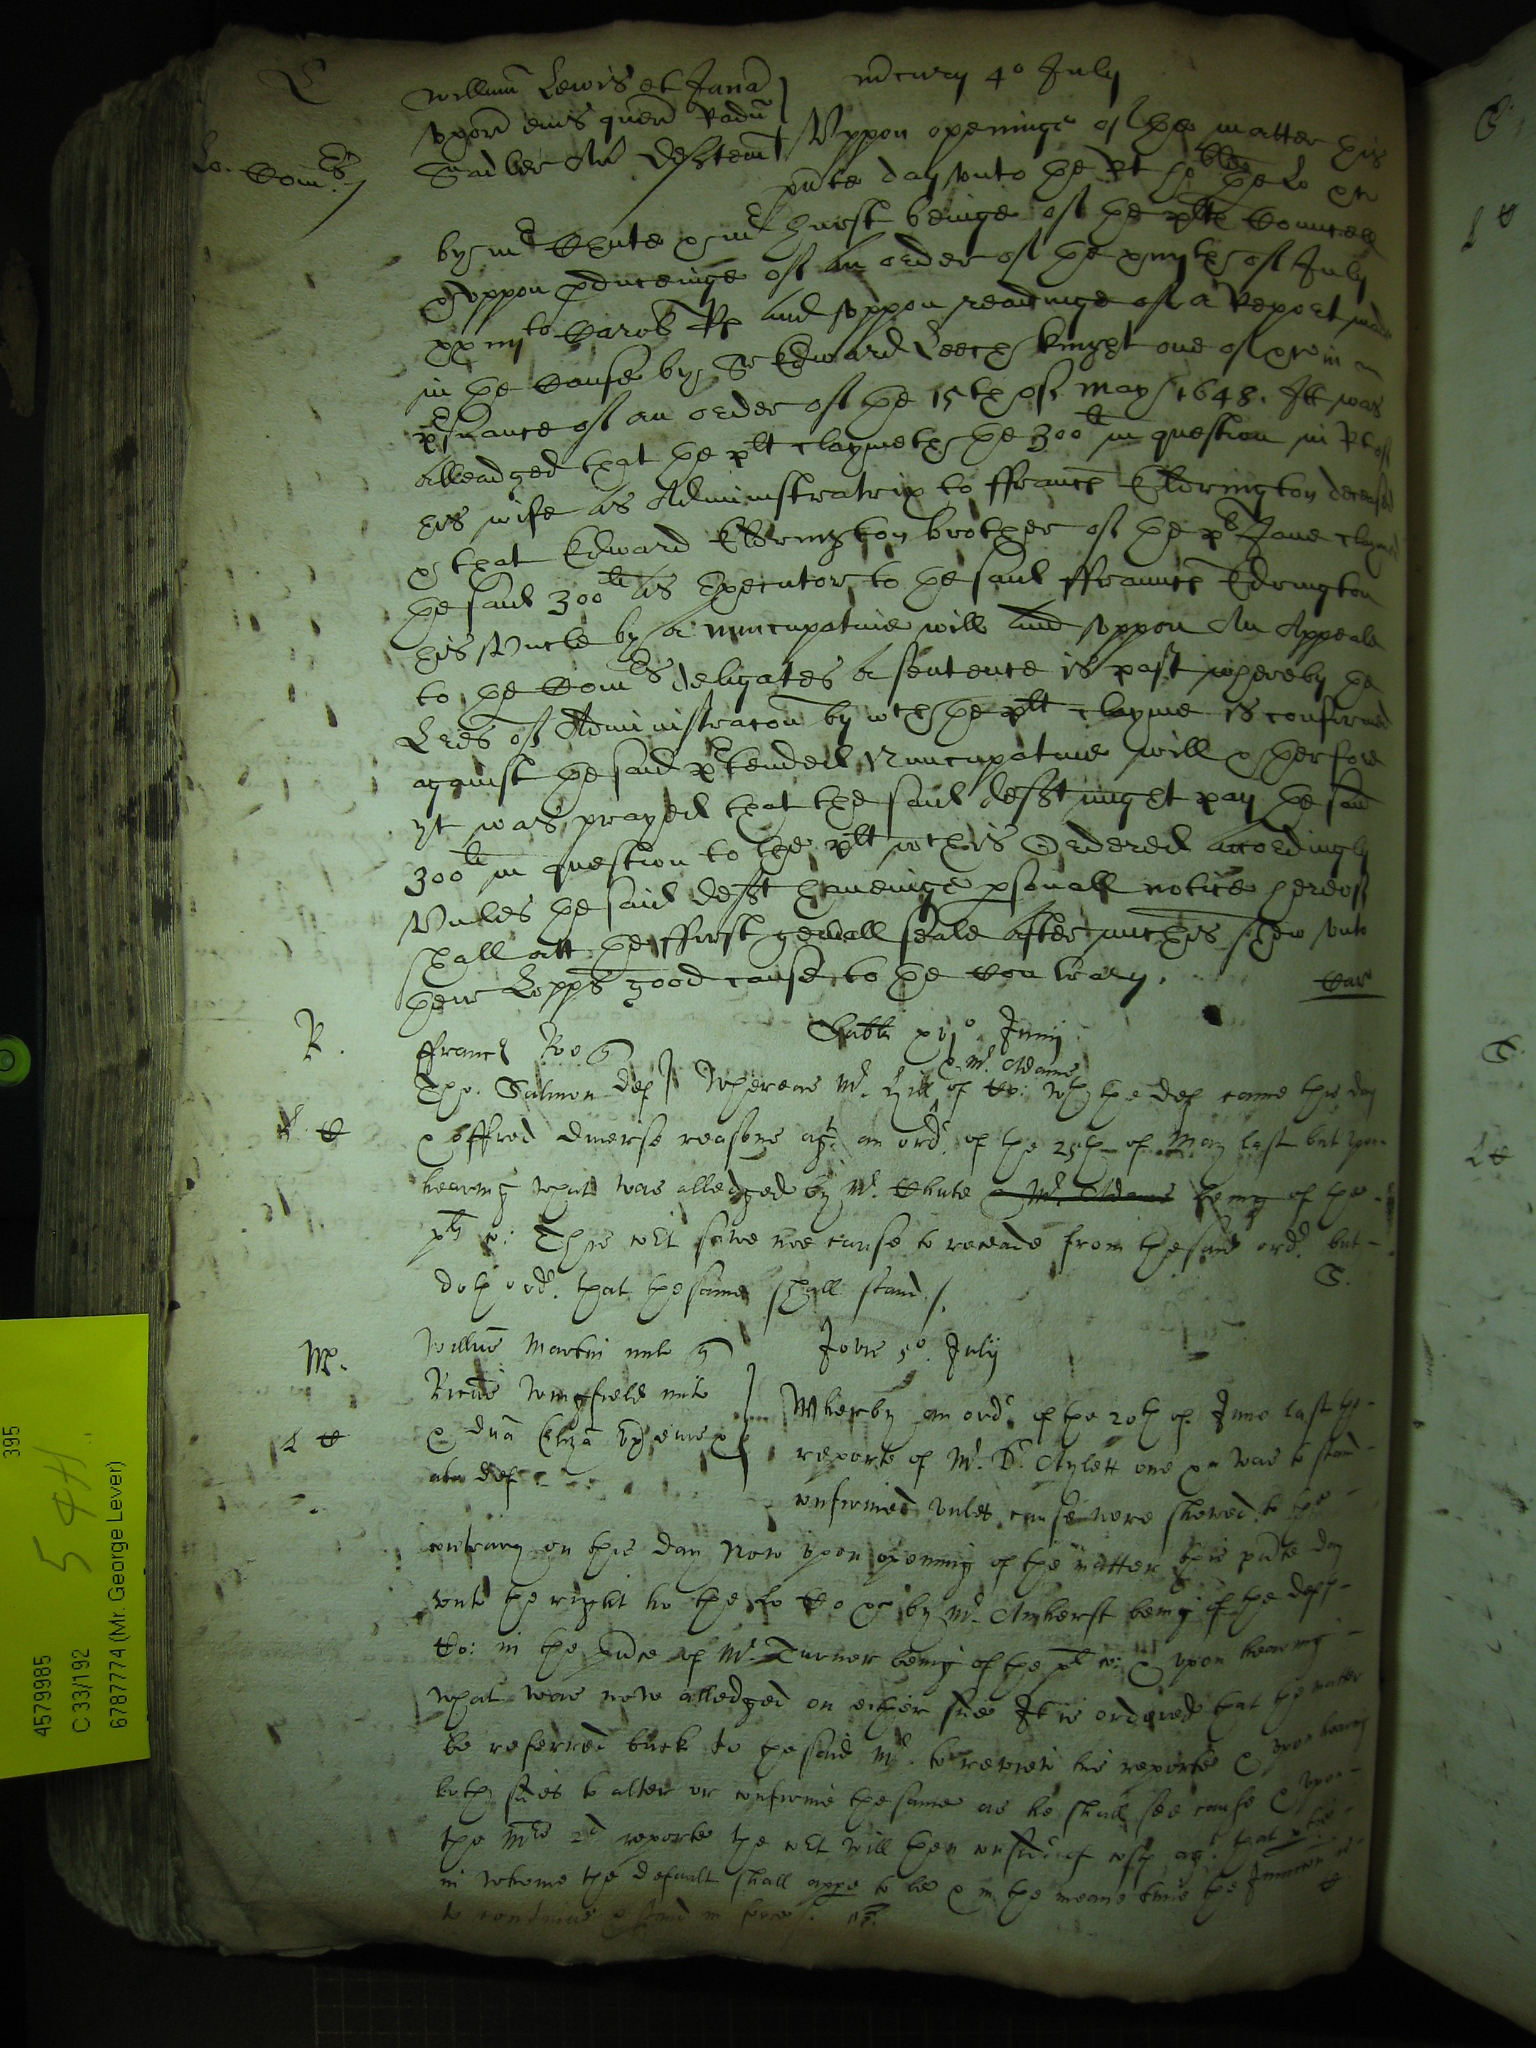 L
Willum Lewis et Jana
vxor eius quer Radu
Sadler Ar Defftem
Mcury 4o July
Lo: Comrs
Vppon openinge of the matter this
pnte day vnto the Rt hoble the Lo
by mr Chute & mr Hurst beinge of the plts Councell
& vppon pduceinge of An order of the of July
Caroli Rs And vppon readinge of a Report made
in the Cause by Sr Edward Leech Knight one of in
psuance of an order of the 15th of May 1648. Itt was
Alleadged that the plt claymeth the 300li in question in Rt of
his wife as Administratrix to ffrancs Eldrington deceased
& that Edward Eldrington brother of the pl Jane claymed
the said 300li as Executor to the said ffrauncs Edrington
his Vncle by a nuncupatiue will And vppon An Appeale
to the Comrs deligates a sentence is past whereby the
Lres of Administracon by wch the plt clayme is confirmed
against the said prtended Nuncupatiue will & therfore
yt was prayed that the said defft might pay the said
300li in question to the plt wch is Ordered accordingly
Vnles the said defft haueinge psonall notice hereof
shall att the ffirst genall seale after michis shew vnto
their Lopps good cause to the Contrary.
Car
R.
ffranc Roe q
Tho. Salmon def
Sabti xvjo Junij
L C
& Mr. Adams
Whereas Mr. Hill of Co: wth the def came this day
& offred diuerse reasons agt. an ordr. of the 25th of May last but vpon
hearing what was alledged by Mr. Chute & Mr. Adams being of the
plts co: This Cot sawe noe cause to receade from the said ordr. but
doth ordr. that the same shall stand /.
S.
M.
Willus Martin milo q
Ricus Wingfield milo
& dna Eliza vx eius &
alia def
Jovis 5o. Julij
L C
Wherby an ordr. of the 20th of June last the
reporte of Mr. Dr. Aylett one was to stand
confirmed vnles cause were shewed to the
contrary on this day Now vpon opening of the matter this pnte day
vnto the right ho the Lo Co by Mr. Amherst being of the defts
Co: in the pnce of Mr. Turner being of the pl co: & vpon hearing
what was now alledged on either side It is ordered that the matter
be referred back to the said Mr. to review his reporte & vpon hearing
both sides to alter or confirme the same as he shall see cause & vpon
the Mrs 2d reporte the Cot will then consider of costs agt. that ptie
in whome the default shall appe to be & in the meane time the Inuncon is
to continue & stand in force /.
395
5 4H
4579985
C 33/192
6787774 (Mr. George Lever)